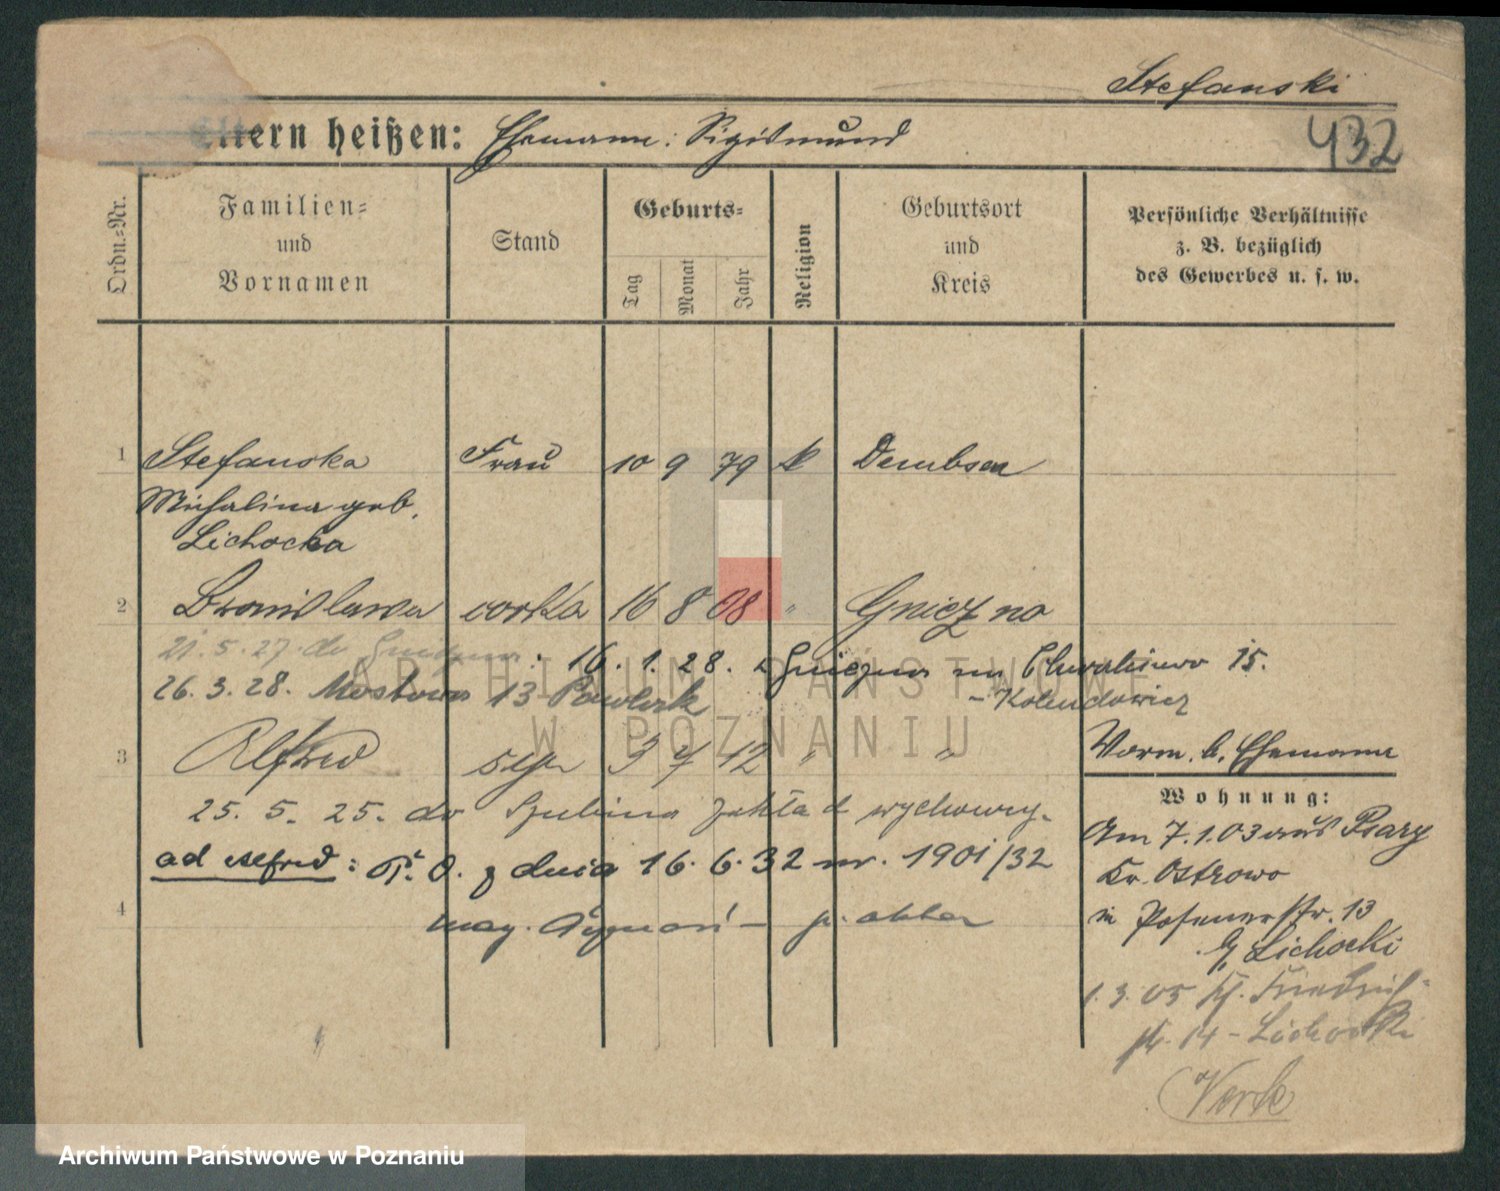 Stefanski
432
Eltern heißen: Ehemann: Sigismund
Ordn.-Nr.
Familien-
und
Vornamen
Stand
Geburts-
Tag
Monat
Jahr
Religion
Geburtsort
und
Kreis
Persönliche Verhältnisse
z. B. bezüglich
des Gewerbes u. s. w.
1 Stefanska Frau 10 9 79 k Dembsen
Michalina geb.
Lichocka
2 Bronislawa corka 16 8 08 " Gniezno
21.5.27. do : 16. 1. 28. z Gniezna
26.3.28. Mostowa 13 Pawlak
3 Alfred syn 3 7 12 " "
Vorm. b. Ehemann
25. 5. 25. do Szubina zakład wychowy.
Wohnung:
Am 7.1.03 aus Psary
ad Alfred: P. O. z dnia 16. 6. 32 nr. 1901/32
Kr. Ostrowo
4
in Posenerstr. 13
b/ Lichocki
1.3.05 Friedrich-
str. 14 - Lichocki
ARCHIWUM PAŃSTWOWE
W POZNANIU
Archiwum Państwowe w Poznaniu